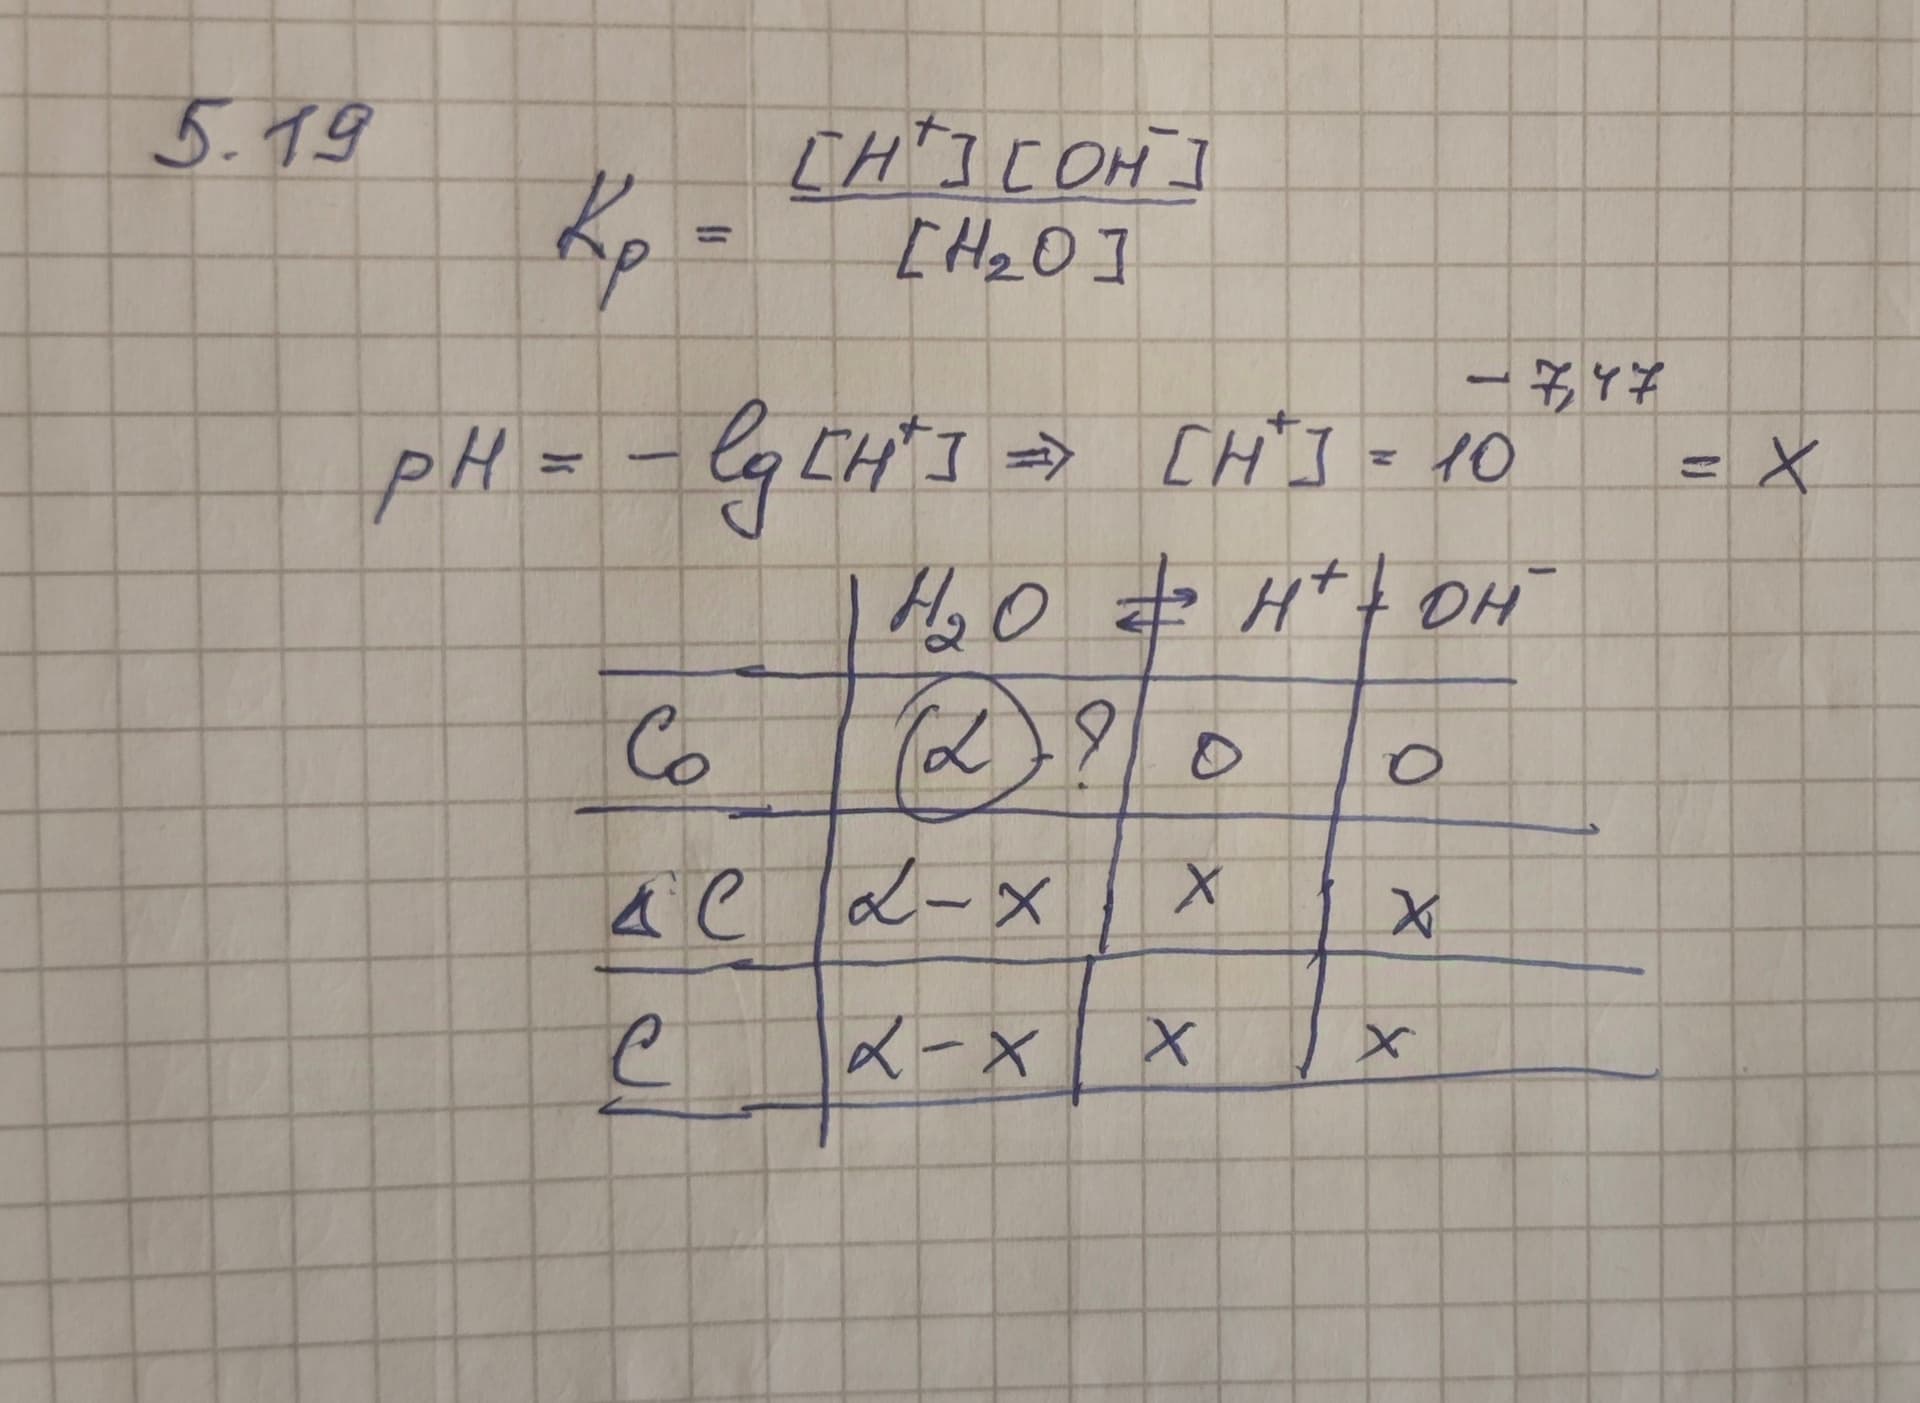 5.19
Kp = [H⁺][OH⁻] / [H₂O]
pH = - lg [H⁺] ⇒ [H⁺] = 10^-7,47 = x
H₂O ⇄ H⁺ + OH⁻
C₀ α - ? 0 0
Δ C α - x x x
C α - x x x